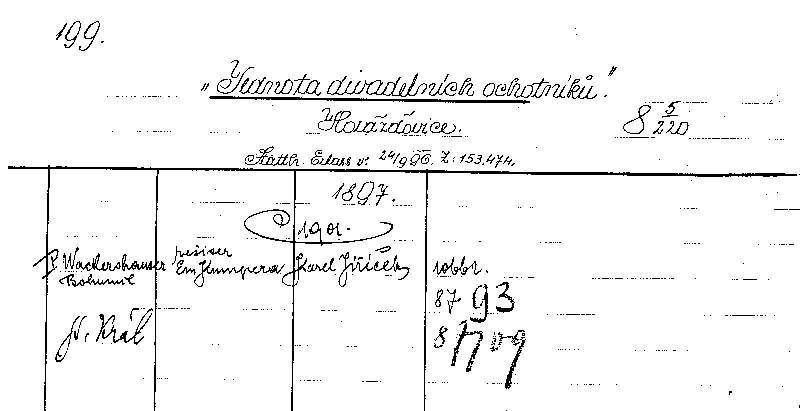 199.
„Jednota divadelních ochotníků."
Horažďovice.
8 5/220
Statth. Erlass v. 24/9 96. Z. 153.474.
1897.
1901.
P. Wackershauser režiser
Bohumil Em Humpera Karel Jiříček
87 93
Fr. Král
8